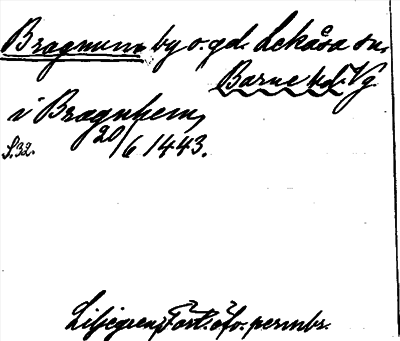 Bragnum by o. gd. Lekåsa sn.
Barne hd. Vg.
i Bragnhem,
S.32. 20/6 1443.
Liljegren, Fört. öfv. permbr.